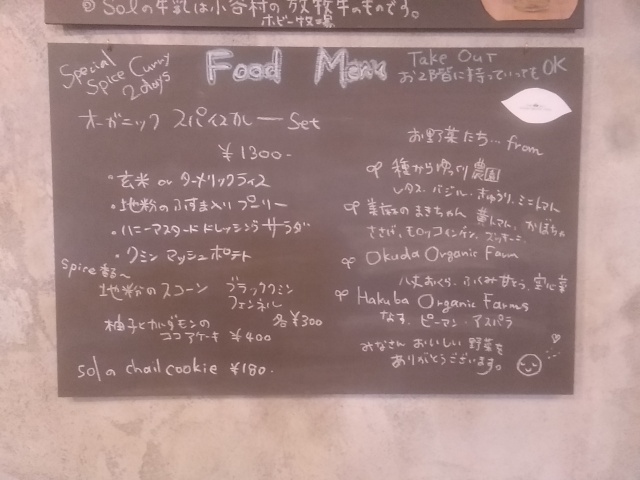 Solの牛乳は小谷村の放牧牛のものです。
ホビー牧場
Special
Spice Curry
2days
Food Menu
Take Out
お2階に持っていってもOK
オーガニック スパイスカレー Set
¥1300-
・玄米 or ターメリックライス
・地粉のふすま入りプーリー
・ハニーマスタードドレッシングサラダ
・クミン マッシュポテト
spice香る~
地粉のスコーン ブラッククミン
フェンネル
各¥300
柚子とカルダモンの
ココアケーキ ¥400
sol a chail cookie ¥180.
お野菜たち...from
種からゆっくり農園
レタス.バジル.きゅうり.ミニトマト
まきちゃん 黄トマト.かぼちゃ
ささげ.モロッコインゲン.ズッキーニ
Okuda Organic Farm
八丈おくら.ふくみ甘とう.空心菜
Hakuba Organic Farms
なす.ピーマン.アスパラ
みなさん おいしい野菜を
ありがとうございます。